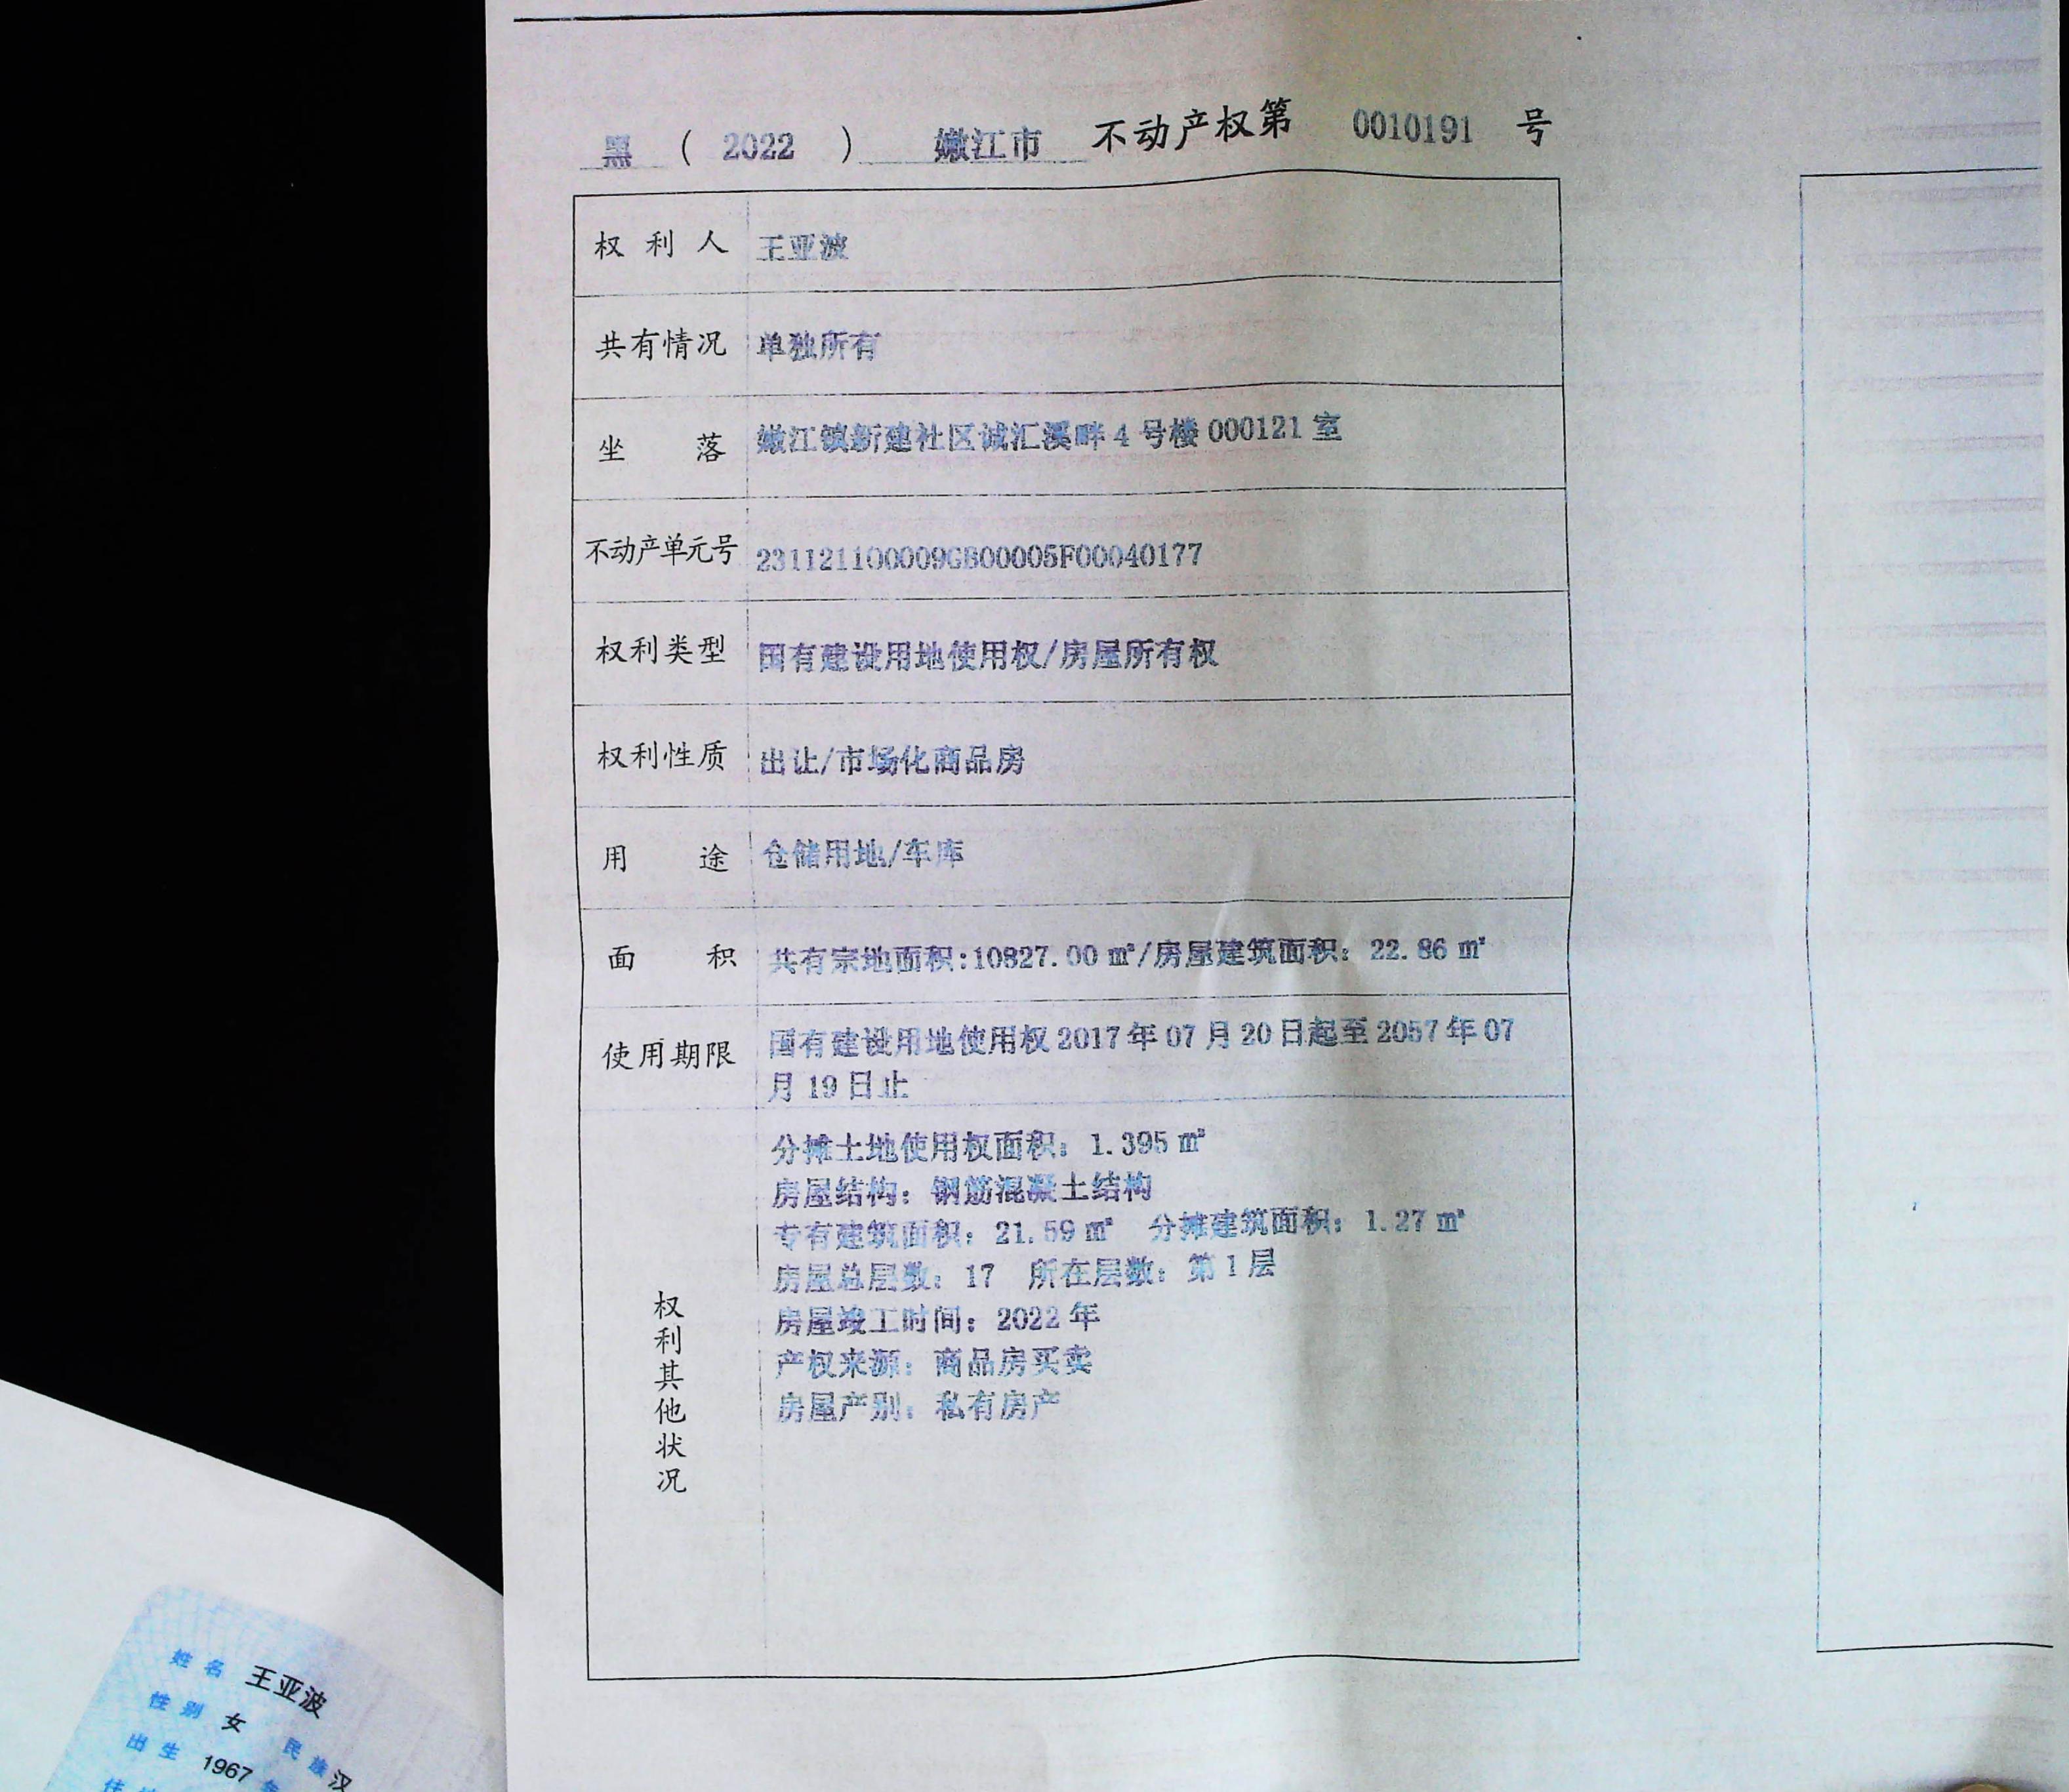 黑 ( 2022 ) 嫩江市 不动产权第 0010191 号
权利人 王亚波
共有情况 单独所有
坐落 嫩江镇新建社区诚汇溪畔4号楼000121室
不动产单元号 231121100009GB00005F00040177
权利类型 国有建设用地使用权/房屋所有权
权利性质 出让/市场化商品房
用途 仓储用地/车库
面积 共有宗地面积:10827.00㎡/房屋建筑面积：22.86㎡
使用期限 国有建设用地使用权2017年07月20日起至2057年07
月19日止
权利其他状况
分摊土地使用权面积：1.395㎡
房屋结构：钢筋混凝土结构
专有建筑面积：21.59㎡ 分摊建筑面积：1.27㎡
房屋总层数：17 所在层数：第1层
房屋竣工时间：2022年
产权来源：商品房买卖
房屋产别：私有房产
姓名 王亚波
性别 女 民族 汉
出生 1967 年